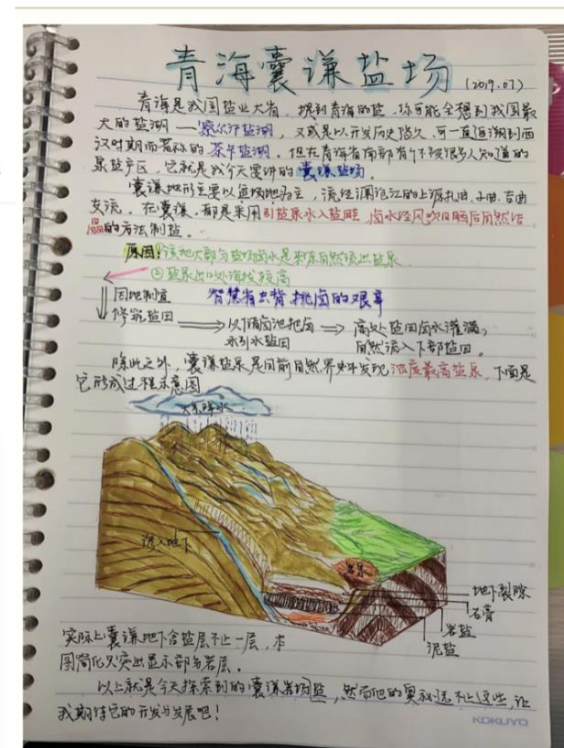 青海囊谦盐场(2019.07)
青海是我国盐业大省,提到青海的盐,你可能会想到我国最
大的盐湖——察尔汗盐湖,又或是以开发历史悠久,可一直追溯到西
汉时期而著称的茶卡盐湖。但在青海省南部有个不被很多人知道的
泉盐产区,它就是我今天要讲的囊谦盐场。
囊谦地形主要以高山地为主,流经澜沧江的上游扎曲、子曲、吉曲
支流。在囊谦,都是采用引盐泉水入盐畦,卤水经风吹日晒后自然结
晶的方法制盐。
原因:①该地大部分盐场卤水是来源自然流出盐泉
②盐泉出口处海拔较高
因地制宜
修筑盐田
智慧省去背挑卤的艰辛
以储卤池把卤
水引水盐田
高处盐田卤水灌满,
自然流入下部盐田。
除此之外,囊谦盐泉是目前自然界中发现浓度最高盐泉,下面是
它形成过程示意图
大气降水
渗入地下
盐泉
地下裂隙
石膏
岩盐
泥盐
实际上囊谦地下含盐层不止一层,本
图简化只突出显示部分岩层。
以上就是今天探索到的囊谦盐场,然而他的奥秘远不止这些,让
我期待它的开发与发展吧!
KOKUYO